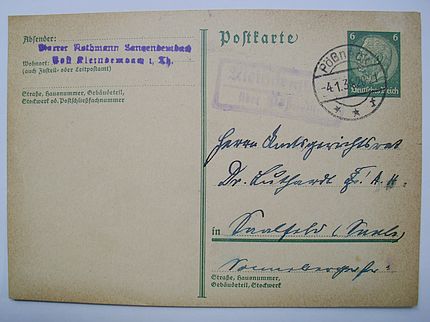 Absender:
Pfarrer Rothmann Langendembach
Wohnort: Post Kleindembach i. Th.
(auch Zustell- oder Leitpostamt)
Straße, Hausnummer, Gebäudeteil,
Stockwerk od. Postschließfachnummer
Postkarte
6 6
Deutsches Reich
Pößneck
-4.1.3
über
Herrn Amtsgerichtsrat
Dr. Luthardt
in Saalfeld (Saale)
Sonneberger
Straße, Hausnummer,
Gebäudeteil, Stockwerk